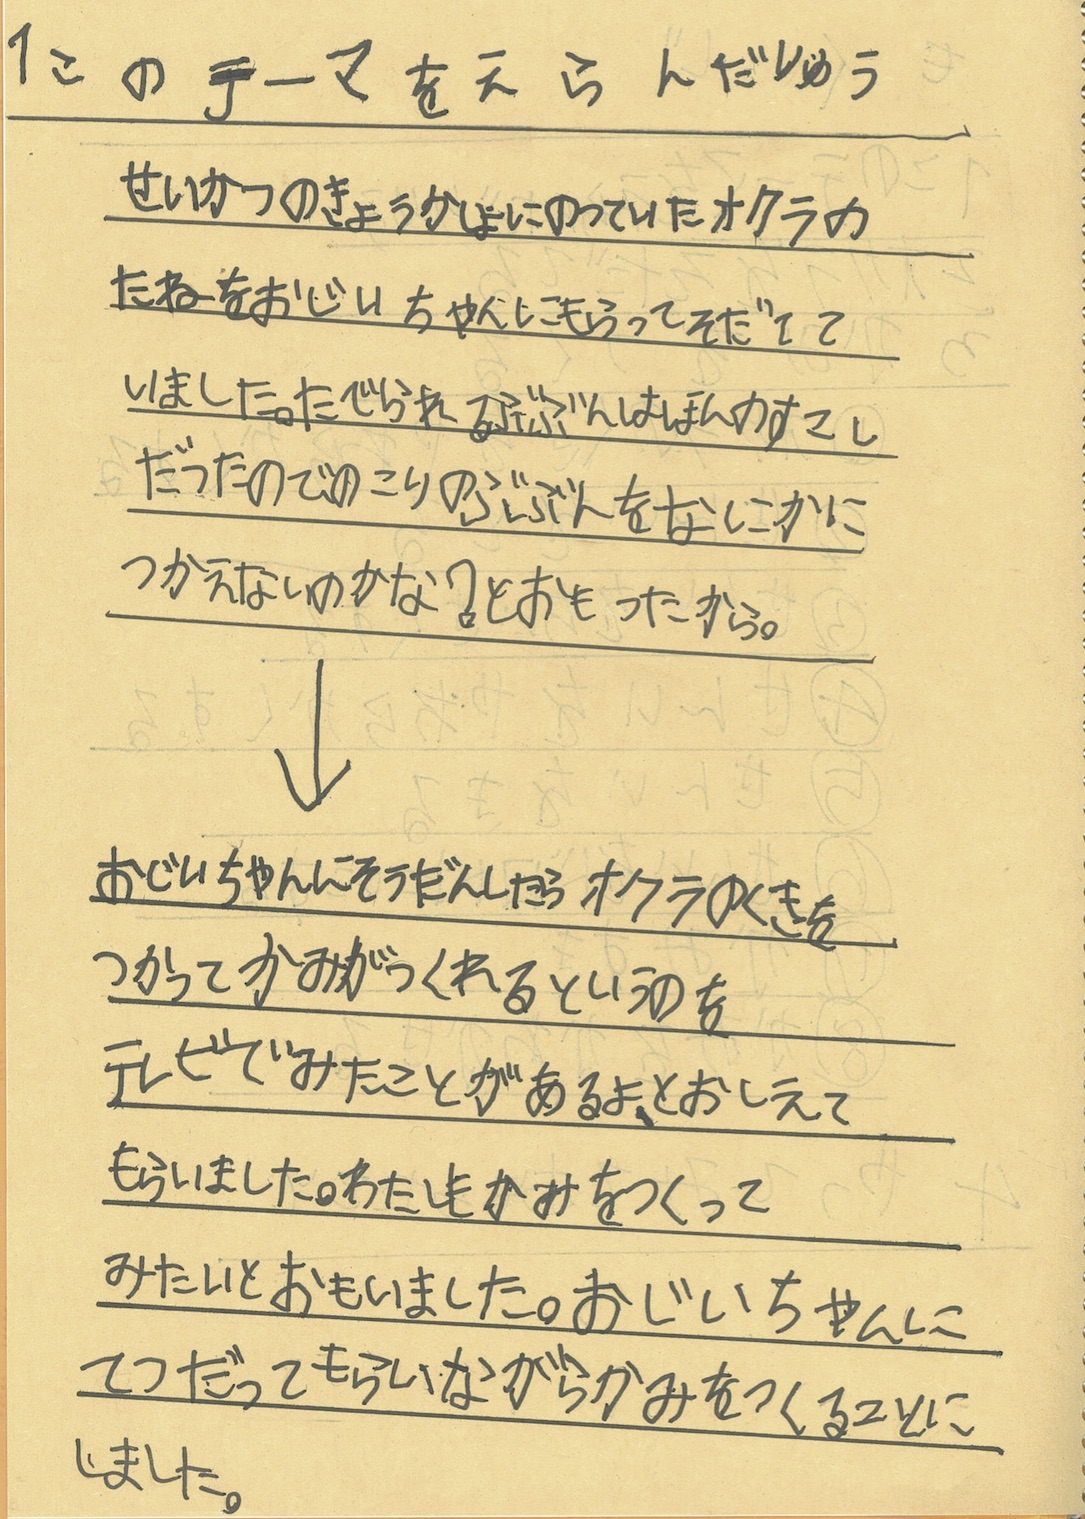 1このテーマをえらんだりゆう
せいかつのきょうかしょにのっていたオクラの
たねをおじいちゃんにもらってそだてて
いました。たべられるぶぶんはほんのすこし
だったのでのこりのぶぶんをなにかに
つかえないのかな?とおもったから。
↓
おじいちゃんにそうだんしたらオクラのくきを
つかってかみがつくれるというのを
テレビでみたことがあるよ、とおしえて
もらいました。わたしもかみをつくって
みたいとおもいました。おじいちゃんに
てつだってもらいながらかみをつくることに
しました。